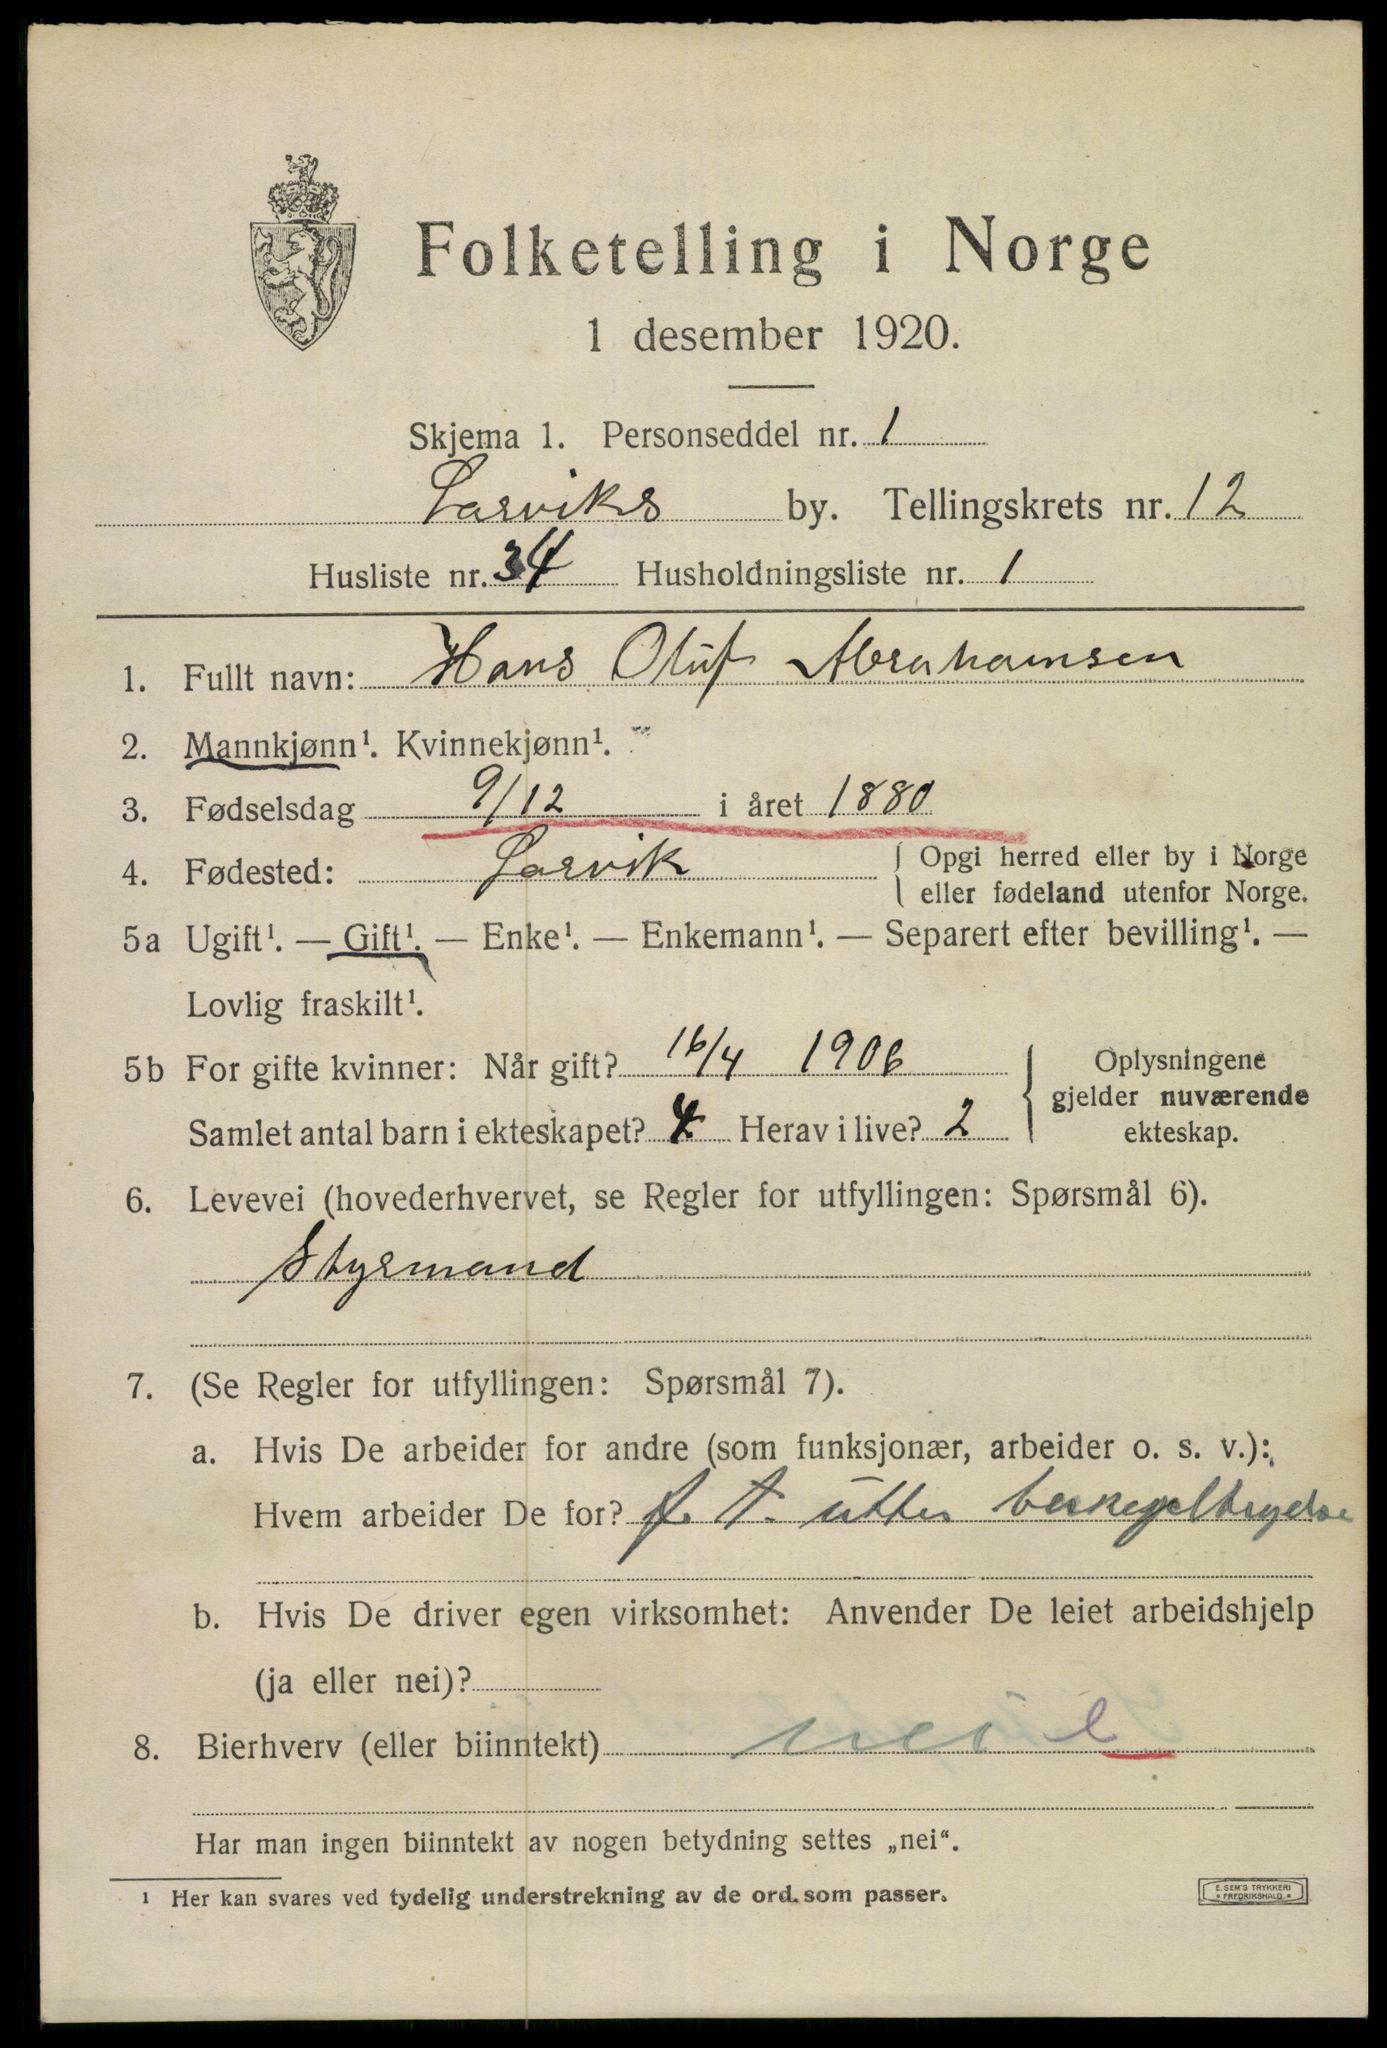 Folketelling i Norge
1 desember 1920.
Skjema 1. Personseddel nr. 1
Larviks by. Tellingskrets nr. 12
Husliste nr. 34 Husholdningsliste nr. 1
1. Fullt navn: Hans Oluf Abrahamsen
2. Mannkjønn¹. Kvinnekjønn¹.
3. Fødselsdag 9/12 i året 1880
4. Fødested: Larvik { Opgi herred eller by i Norge
eller fødeland utenfor Norge.
5a Ugift¹. — Gift¹. — Enke¹. — Enkemann¹. — Separert efter bevilling¹. —
Lovlig fraskilt¹.
5b For gifte kvinner: Når gift? 16/4 1906
Samlet antal barn i ekteskapet? Herav i live? 2
{ Oplysningene
gjelder nuværende
ekteskap.
6. Levevei (hovederhvervet, se Regler for utfyllingen: Spørsmål 6).
Styrmand
7. (Se Regler for utfyllingen: Spørsmål 7).
a. Hvis De arbeider for andre (som funksjonær, arbeider o. s. v.):
Hvem arbeider De for? f. t. utten
b. Hvis De driver egen virksomhet: Anvender De leiet arbeidshjelp
(ja eller nei)?
8. Bierhverv (eller biinntekt) nei
Har man ingen biinntekt av nogen betydning settes „nei“.
¹ Her kan svares ved tydelig understrekning av de ord som passer.
E. SEM'S TRYKKERI
• FREDRIKSHALD •